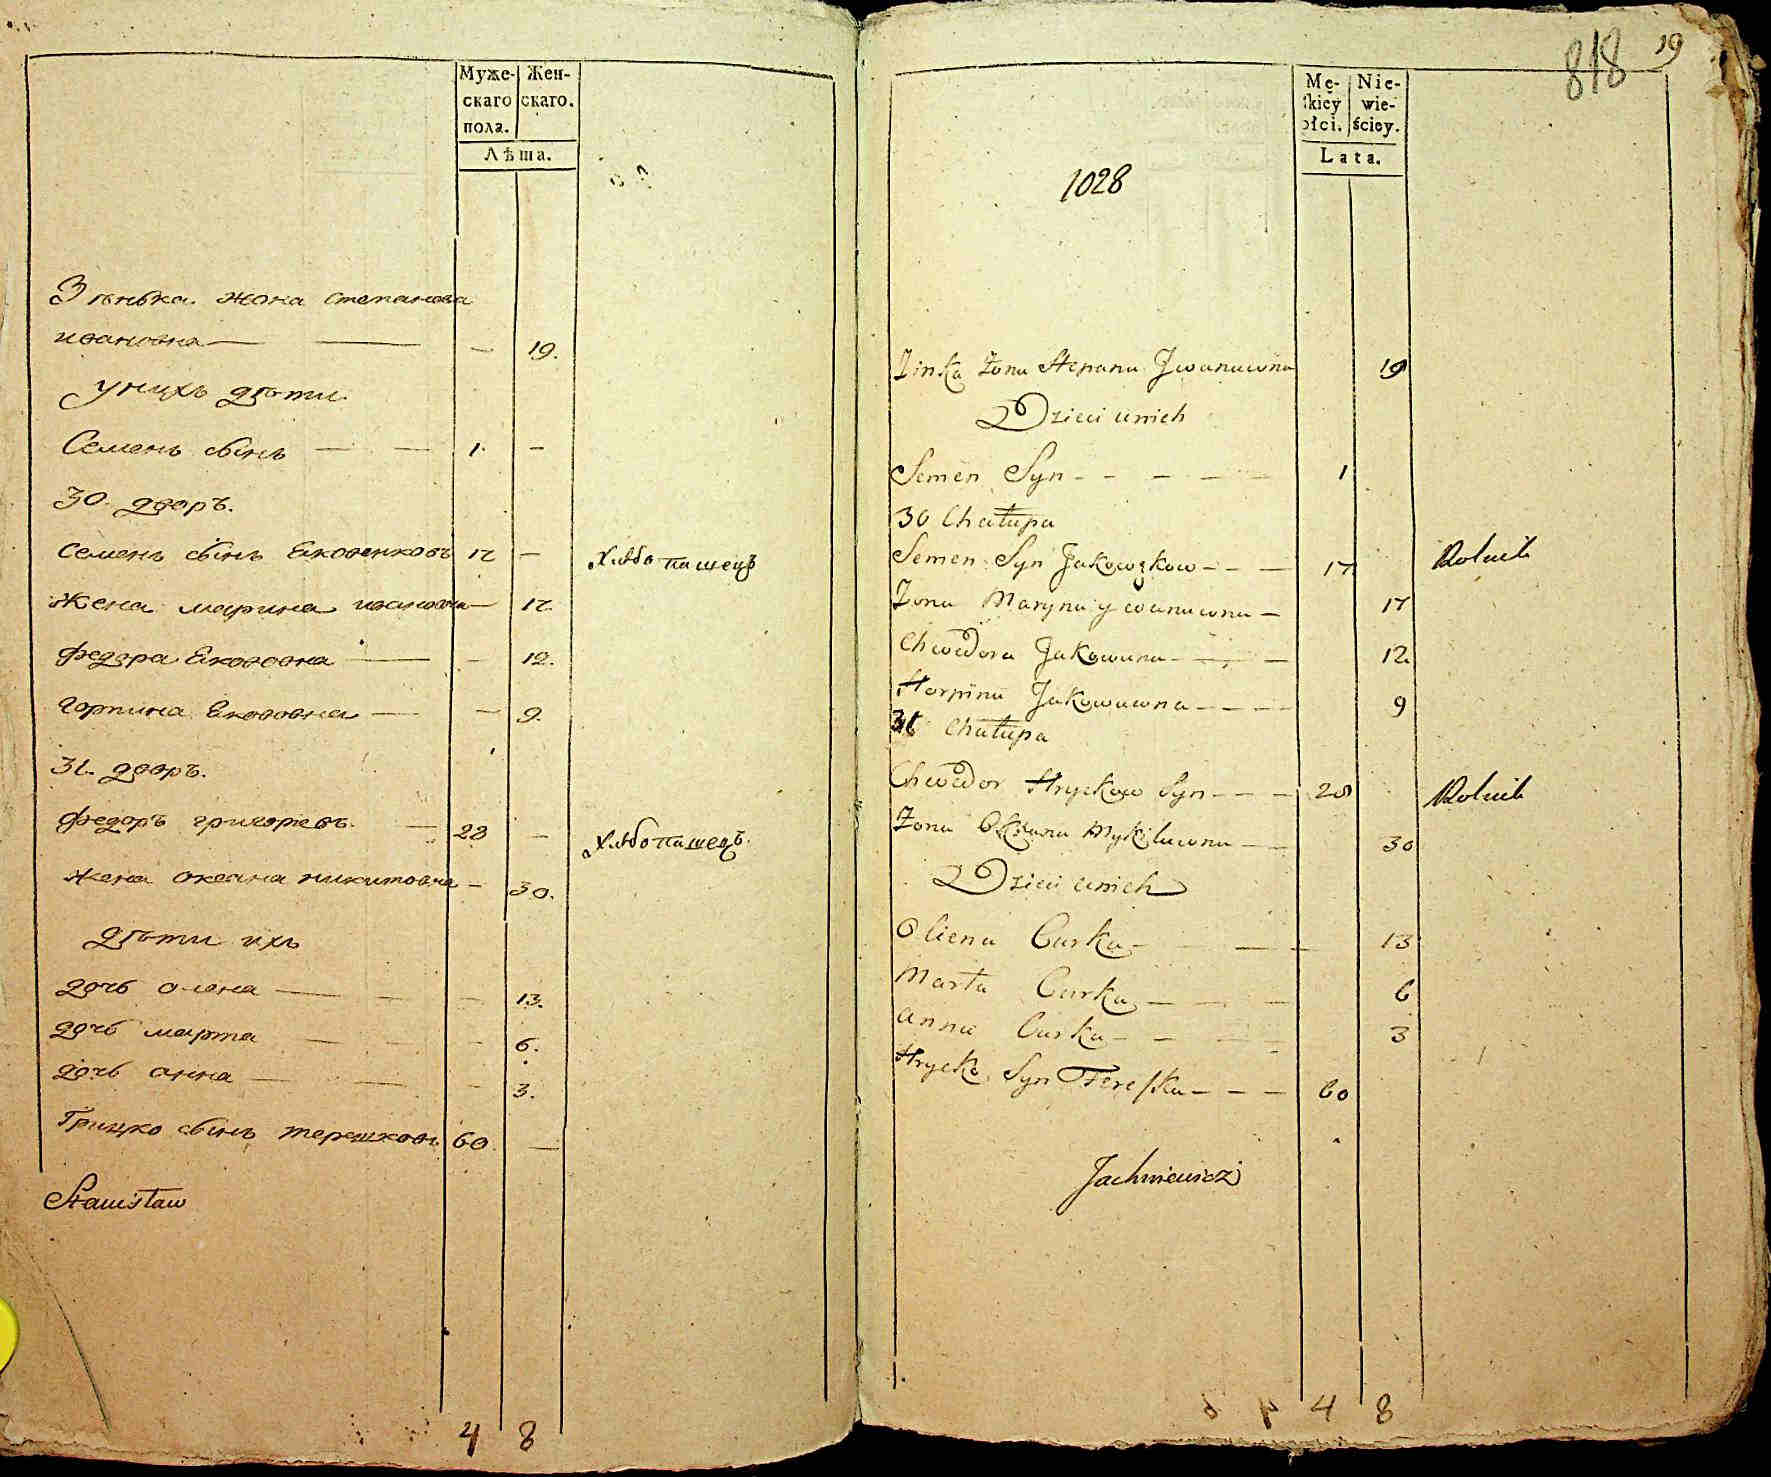 Муже- Жен-
скаго скаго.
пола.
Лѣта.
Зѣнька жона степанова
ивановна — — — 19.
У нихъ дѣти
Семенъ сынъ — — 1. —
30. дворъ.
Семенъ сынъ Яковенковъ 17 — Хлѣбопашецъ
Жена марина ивановна — 17.
Федора Якововна — — 12.
Горпина Якововна — — 9.
31. дворъ.
Федоръ григорьевъ. — 28 — Хлѣбопашецъ.
Жена оксана никитовна — 30.
Дѣти ихъ
дочь олена — — — 13.
дочь марта — — — 6.
дочь анна — — — 3.
Грицко сынъ терешковъ 60 —
Stanisław
4 8
818 19
Mę- Nie-
skiey wie-
płci. ściey.
Lata.
1028
Zinka Żona Stepana Jwanuwna 19
Dzieci u nich
Semen Syn - - - - - 1
30 Chałupa
Semen Syn Jakowzkow - - - 17 Rolnik
Żona Maryna ywanuwna — 17
Chwedora Jakowuna - - - 12
Horpina Jakowuwna - - - - 9
31 Chałupa
Chwedor Hryckow Syn - - - 28 Rolnik
Żona Oxana Mykiluwna — 30
Dzieci u nich
Oliena Curka - - - 13
Marta Curka - - - 6
Anna Curka - - - 3
Hrycko Syn Tereszka - - - 60
Jachniewicz
4 8